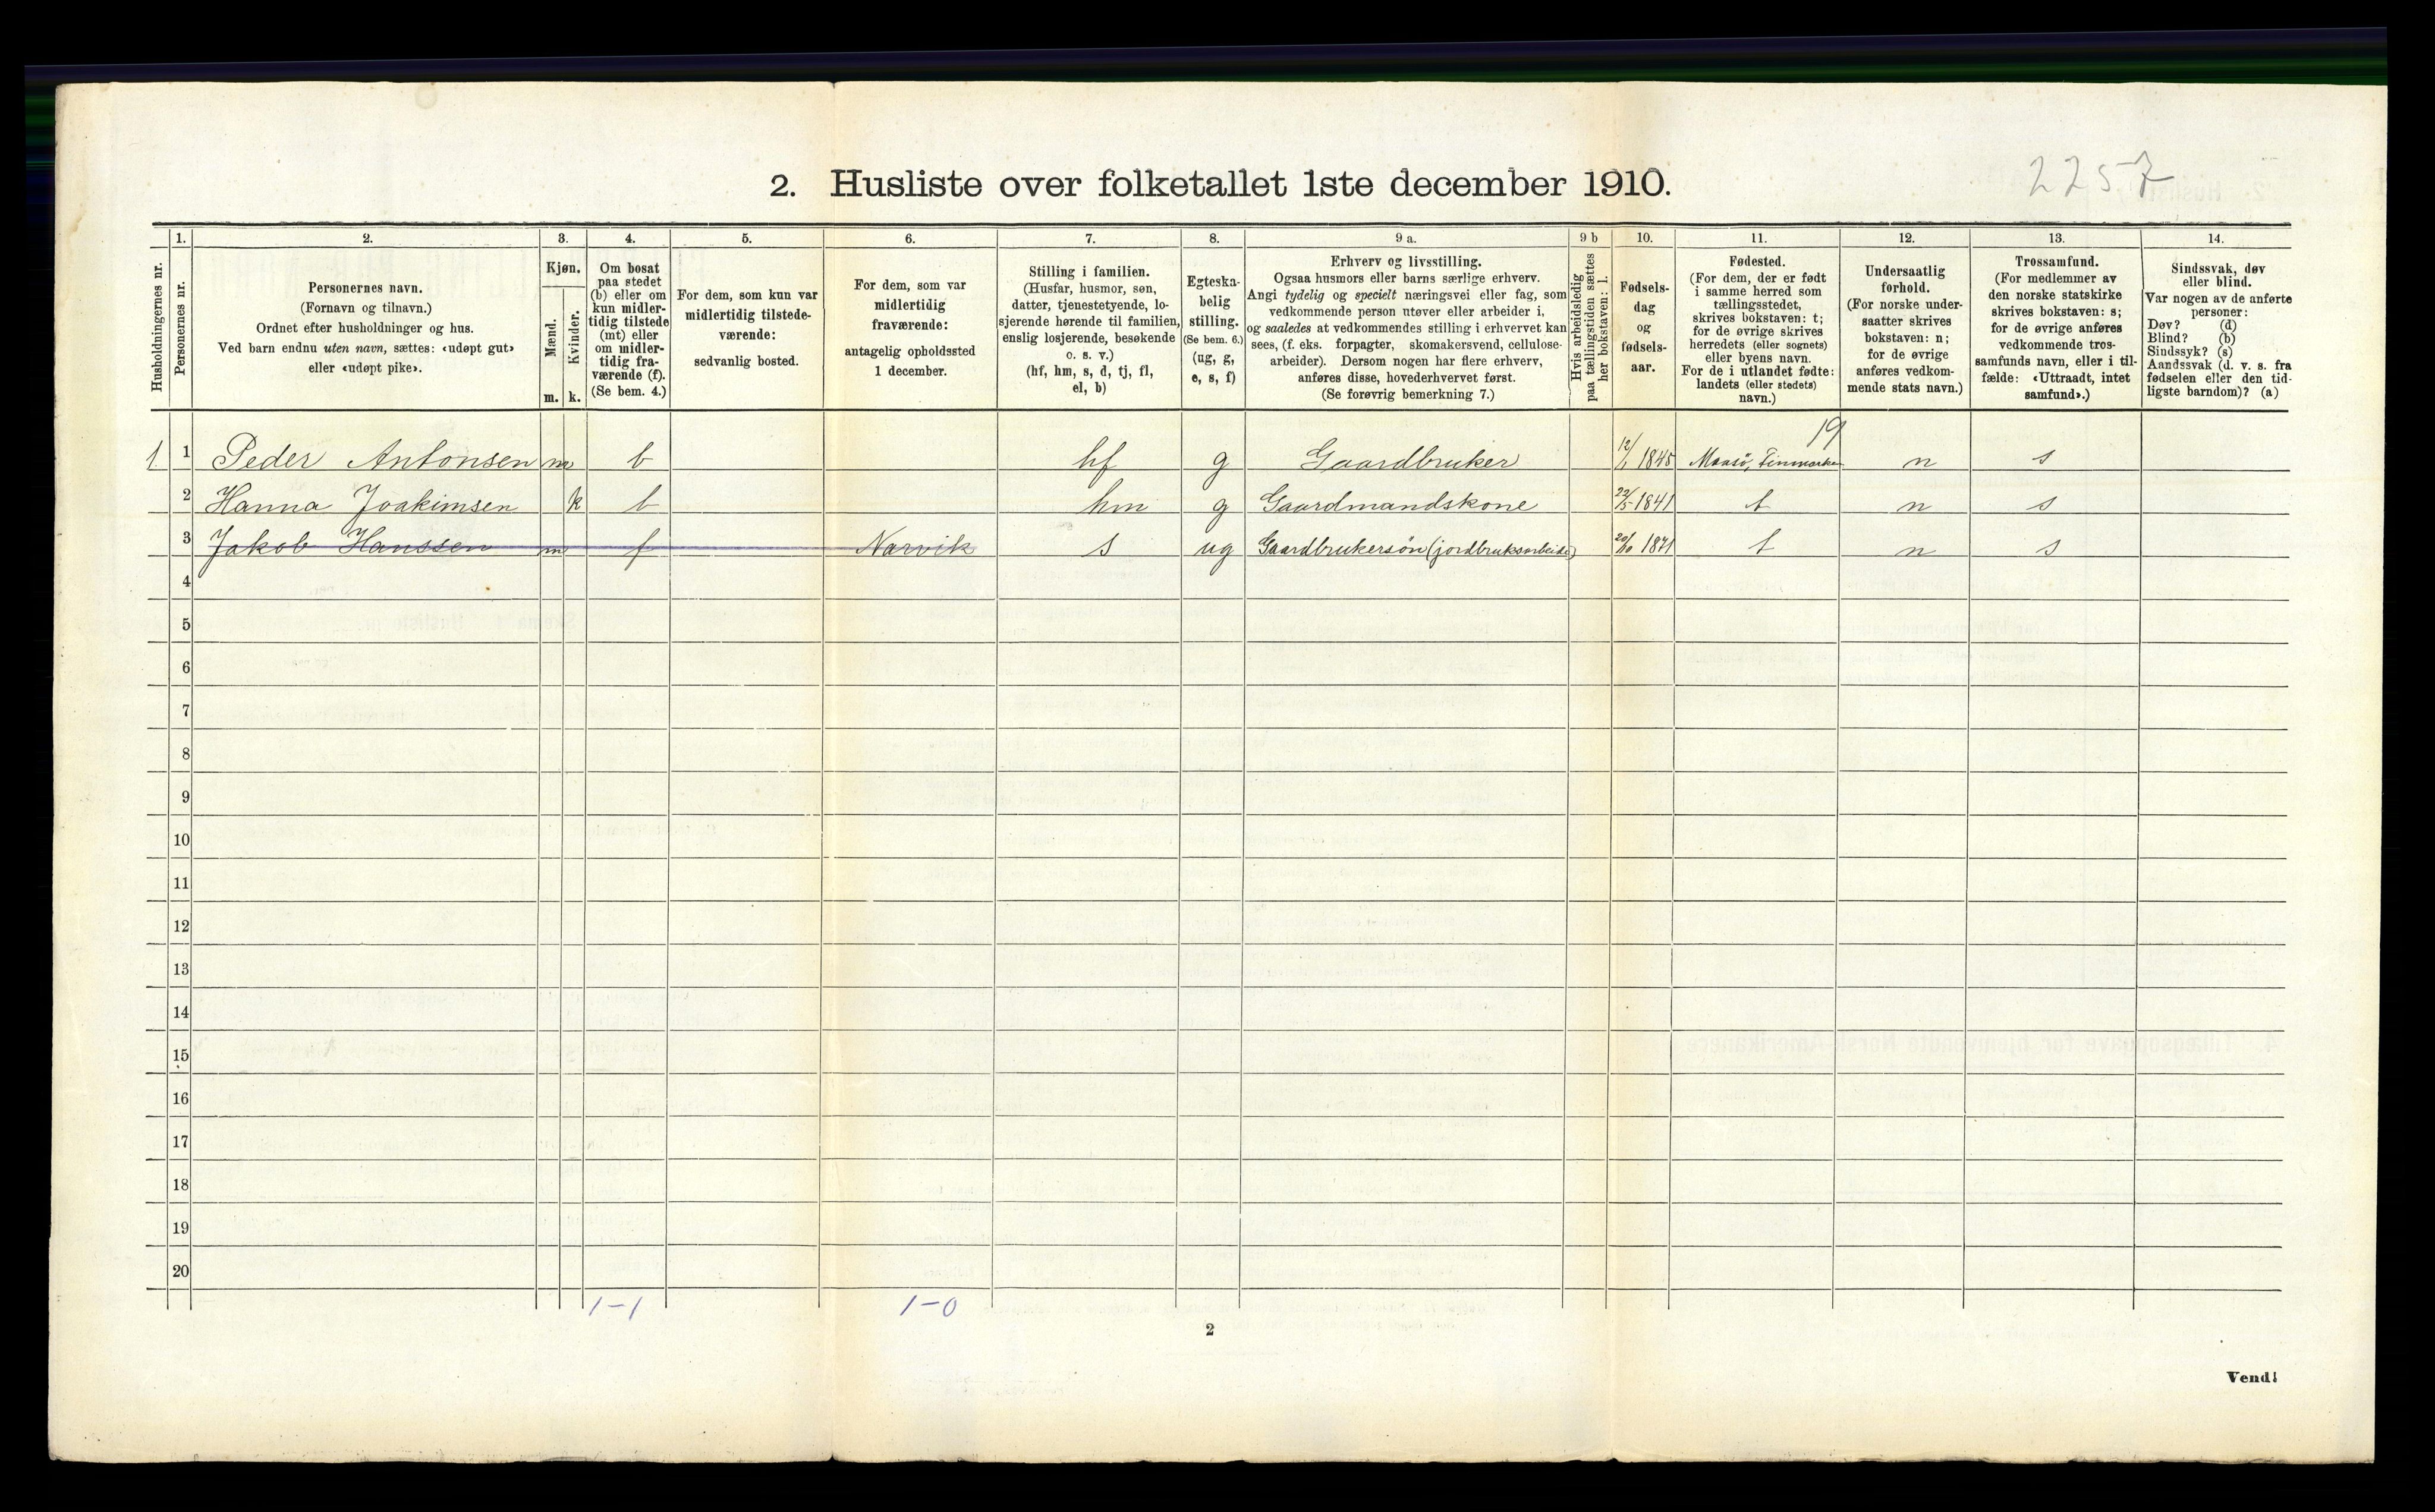 2. Husliste over folketallet 1ste december 1910.
2257
Husholdningernes nr.
1.
Personernes nr.
2.
Personernes navn.
(Fornavn og tilnavn.)
Ordnet efter husholdninger og hus.
Ved barn endnu uten navn, sættes: «udøpt gut»
eller «udøpt pike».
3.
Kjøn.
Mænd.
Kvinder.
m. k.
4.
Om bosat
paa stedet
(b) eller om
kun midler-
tidig tilstede
(mt) eller
om midler-
tidig fra-
værende (f).
(Se bem. 4.)
5.
For dem, som kun var
midlertidig tilstede-
værende:
sedvanlig bosted.
6.
For dem, som var
midlertidig
fraværende:
antagelig opholdssted
1 december.
7.
Stilling i familien.
(Husfar, husmor, søn,
datter, tjenestetyende, lo-
sjerende hørende til familien,
enslig losjerende, besøkende
o. s. v.)
(hf, hm, s, d, tj, fl,
el, b)
8.
Egteska-
belig
stilling.
(Se bem. 6.)
(ug, g,
e, s, f)
9 a.
Erhverv og livsstilling.
Ogsaa husmors eller barns særlige erhverv.
Angi tydelig og specielt næringsvei eller fag, som
vedkommende person utøver eller arbeider i,
og saaledes at vedkommendes stilling i erhvervet kan
sees, (f. eks. forpagter, skomakersvend, cellulose-
arbeider). Dersom nogen har flere erhverv,
anføres disse, hovederhvervet først.
(Se forøvrig bemerkning 7.)
9 b
Hvis arbeidsledig
paa tællingstiden sættes
her bokstaven: l.
10.
Fødsels-
dag
og
fødsels-
aar.
11.
Fødested.
(For dem, der er født
i samme herred som
tællingsstedet,
skrives bokstaven: t;
for de øvrige skrives
herredets (eller sognets)
eller byens navn.
For de i utlandet fødte:
landets (eller stedets)
navn.)
12.
Undersaatlig
forhold.
(For norske under-
saatter skrives
bokstaven: n;
for de øvrige
anføres vedkom-
mende stats navn.)
13.
Trossamfund.
(For medlemmer av
den norske statskirke
skrives bokstaven: s;
for de øvrige anføres
vedkommende tros-
samfunds navn, eller i til-
fælde: «Uttraadt, intet
samfund».)
14.
Sindssvak, døv
eller blind.
Var nogen av de anførte
personer:
Døv? (d)
Blind? (b)
Sindssyk? (s)
Aandssvak (d. v. s. fra
fødselen eller den tid-
ligste barndom)? (a)
19
1. 1 Peder Antonsen m b hf g Gaardbruker 12/1 1845 Maasö, Finmarken n s
2 Hanna Joakimsen k b hm g Gaardmandskone 22/5 1841 t n s
3 Jakob Hanssen m f Narvik s ug Gaardbrukersøn (jordbruksarbeider) 20/10 1871 t n s
4
5
6
7
8
9
10
11
12
13
14
15
16
17
18
19
20
1-1 1-0
2
Vend!